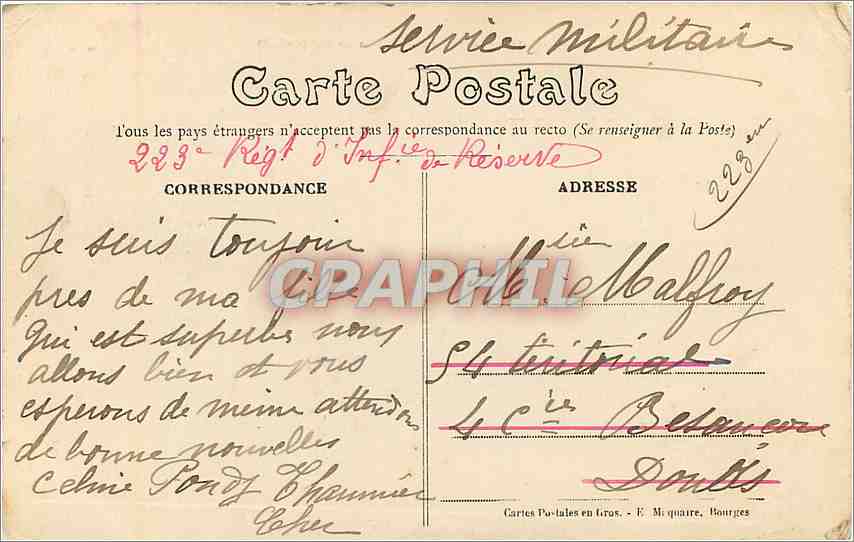 service militaire
Carte Postale
Tous les pays étrangers n'acceptent pas la correspondance au recto (Se renseigner à la Poste)
223e Régt d'Infie de Réserve
223em
CORRESPONDANCE
Je suis toujour
pres de ma fille
qui est superbe nous
allons bien et vous
esperons de meme attendons
de bonne nouvelles
Celine Thaumier
Cher
ADRESSE
Malfroy
54 teritorial
4 Cie Besançon
Doubs
Cartes Postales en Gros. - E. Maquaire, Bourges
CPAPHIL